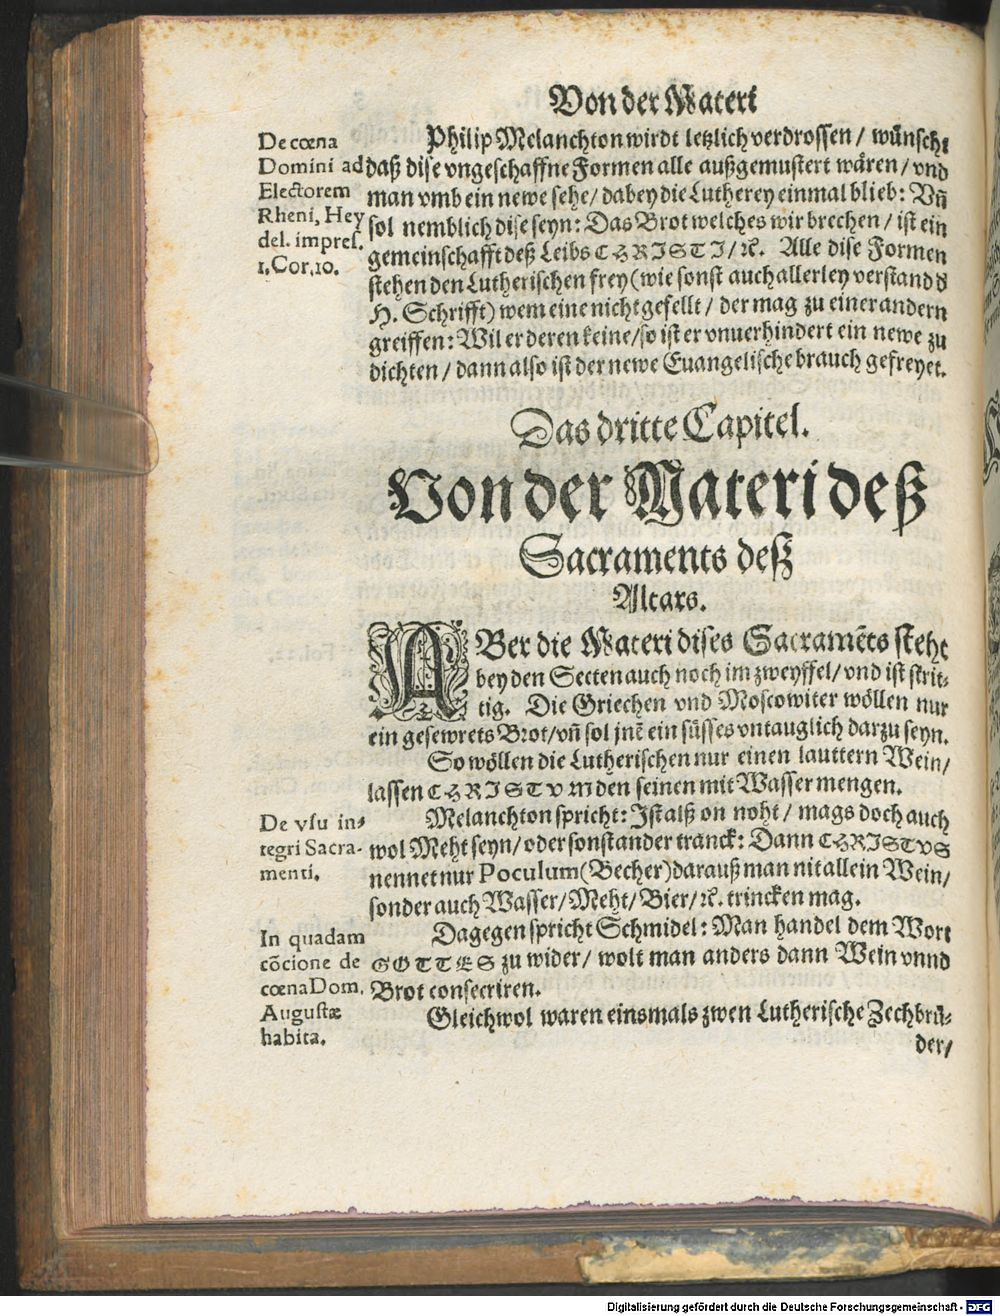 Von der Materi
De cœna
Domini ad
Electorem
Rheni, Hey
del. impres.
1. Cor. 10.
Philip Melanchton wirdt letzlich verdrossen / wünscht
daß dise vngeschaffne Formen alle außgemustert wären / vnd
man vmb ein newe sehe / dabey die Lutherey einmal blieb: Vñ
sol nemblich dise seyn: Das Brot welches wir brechen / ist ein
gemeinschafft deß Leibs CHRISTI / ꝛc. Alle dise Formen
stehen den Lutherischen frey (wie sonst auch allerley verstand d
H. Schrifft) wem eine nicht gefellt / der mag zu einer andern
greiffen: Wil er deren keine / so ist er vnuerhindert ein newe zu
dichten / dann also ist der newe Euangelische brauch gefreyet.
Das dritte Capitel.
Von der Materi deß
Sacraments deß
Altars.
ABer die Materi dises Sacramẽts steht
bey den Secten auch noch im zweyffel / vnd ist strit-
tig. Die Griechen vnd Moscowiter wöllen nur
ein gesewrets Brot / vñ sol jnẽ ein süsses vntauglich darzu seyn.
So wöllen die Lutherischen nur einen lauttern Wein /
lassen CHRISTVM den seinen mit Wasser mengen.
De vsu in-
tegri Sacra-
menti.
Melanchton spricht: Jst alß on noht / mags doch auch
wol Meht seyn / oder sonst ander tranck: Dann CHRISTVS
nennet nur Poculum (Becher) darauß man nit allein Wein /
sonder auch Wasser / Meht / Bier / ꝛc. trincken mag.
In quadam
cõcione de
cœna Dom.
Augustæ
habita.
Dagegen spricht Schmidel: Man handel dem Wort
GOTTES zu wider / wolt man anders dann Wein vnnd
Brot consecriren.
Gleichwol waren einsmals zwen Lutherische Zechbrü-
der /
Digitalisierung gefördert durch die Deutsche Forschungsgemeinschaft - DFG